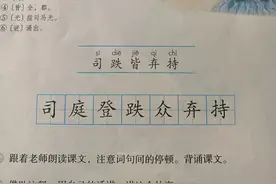 ④〔皆〕全,都。
⑤〔光〕指司马光。
⑥〔迸〕涌出。
sī diē jiē qì chí
司 跌 皆 弃 持
司 庭 登 跌 众 弃 持
跟着老师朗读课文,注意词句间的停顿。背诵课文。